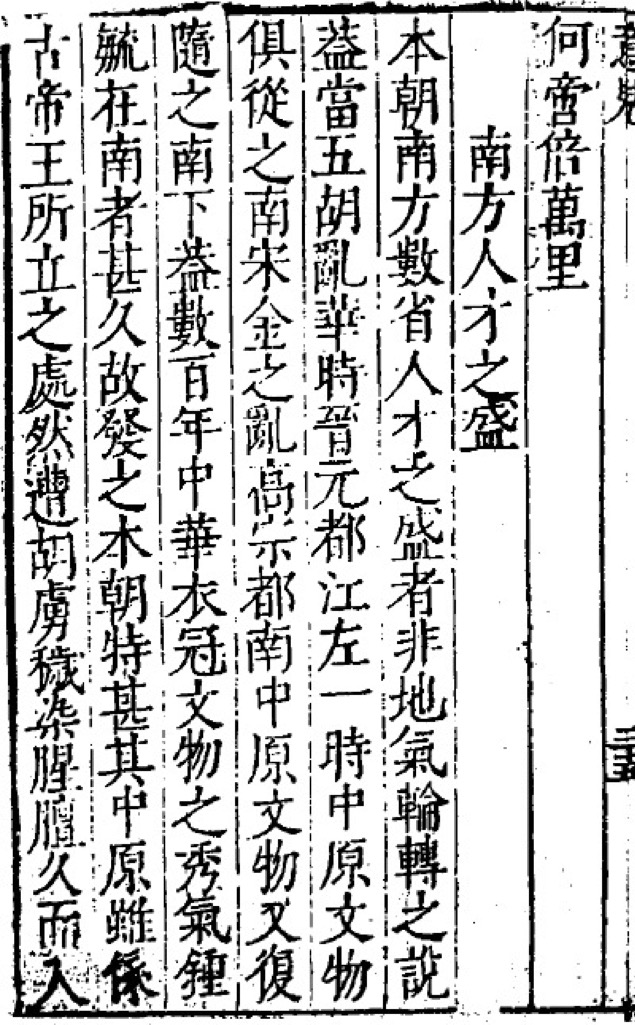 意見
三五
何啻倍萬里
南方人才之盛
本朝南方數省人才之盛者非地氣輪轉之說
葢當五胡亂華時晉元都江左一時中原文物
俱從之南宋金之亂高宗都南中原文物又復
隨之南下葢數百年中華衣冠文物之秀氣鍾
毓在南者甚久故發之本朝特甚其中原雖係
古帝王所立之處然遭胡虜穢染腥膻久而入